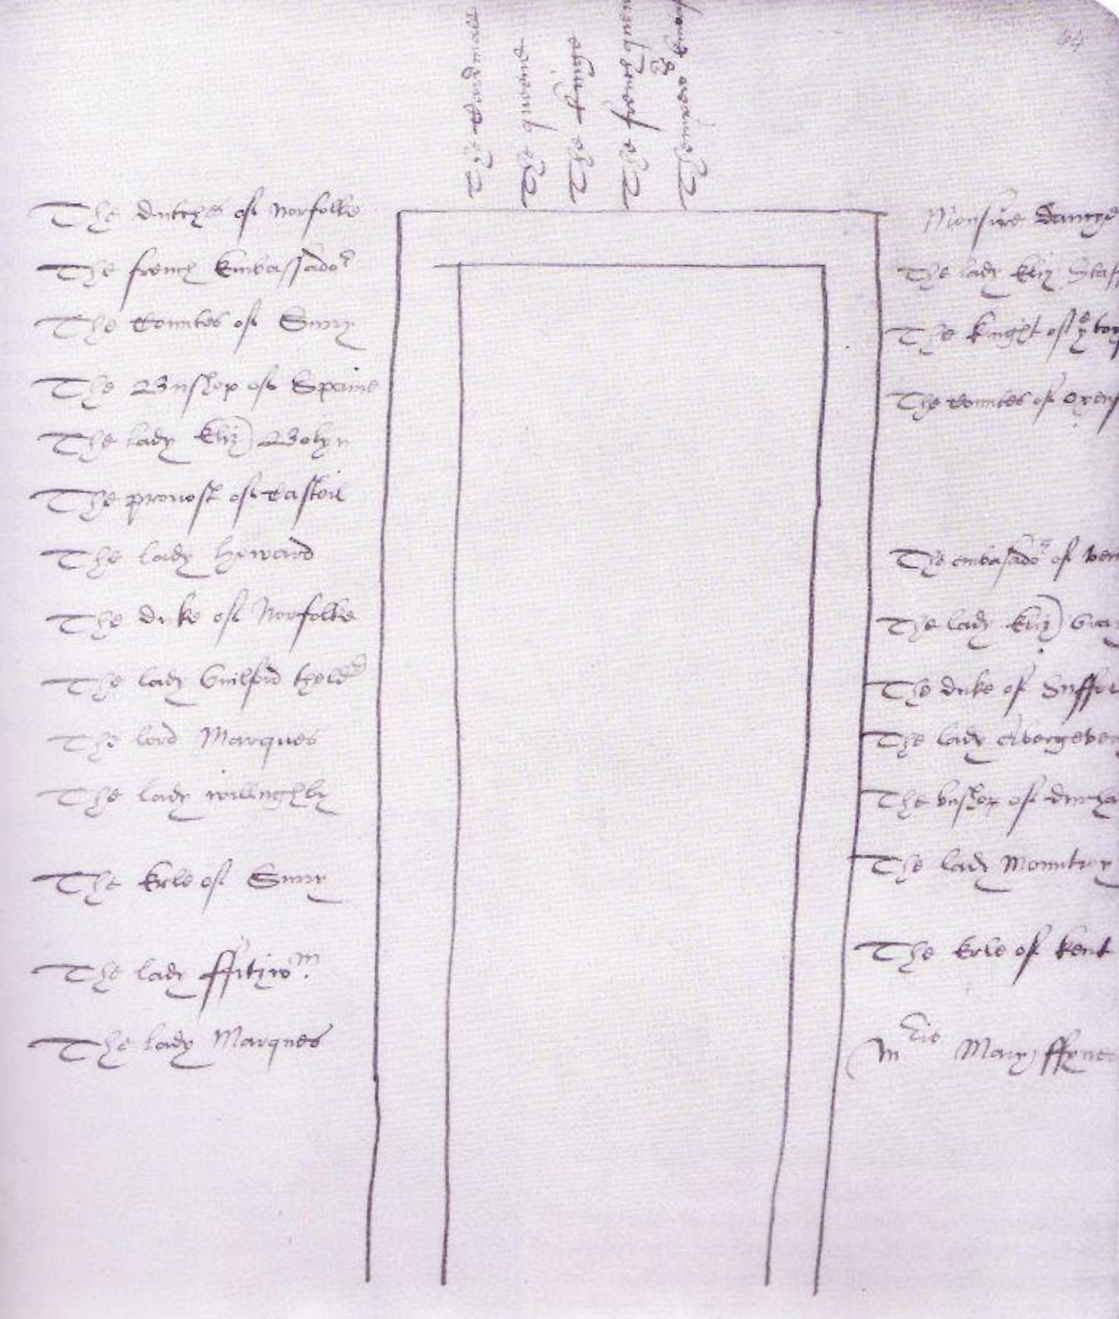 64
The Cardinall
The queene
The kinge
The french quene
Themperor
The dutches of Norfolke
The french Embassador
The Countes of Surry
The Busshop of Spaine
The lady Eliz Bolyn
The provost of Castoil
The lady Howard
The duke of Norfolke
The lady Guilford theld
The lord Marques
The lady willughby
The Erle of Surry
The lady ffitzwm
The lady Marques
Monsire
The lady Eliz Staf
The Knight of ye
The Countes of
The embasador of Ven
The lady Eliz Gra
The duke of Suffo
The lady Abergeven
The bushop of durha
The lady
The Erle of Kent
Mary ffynes